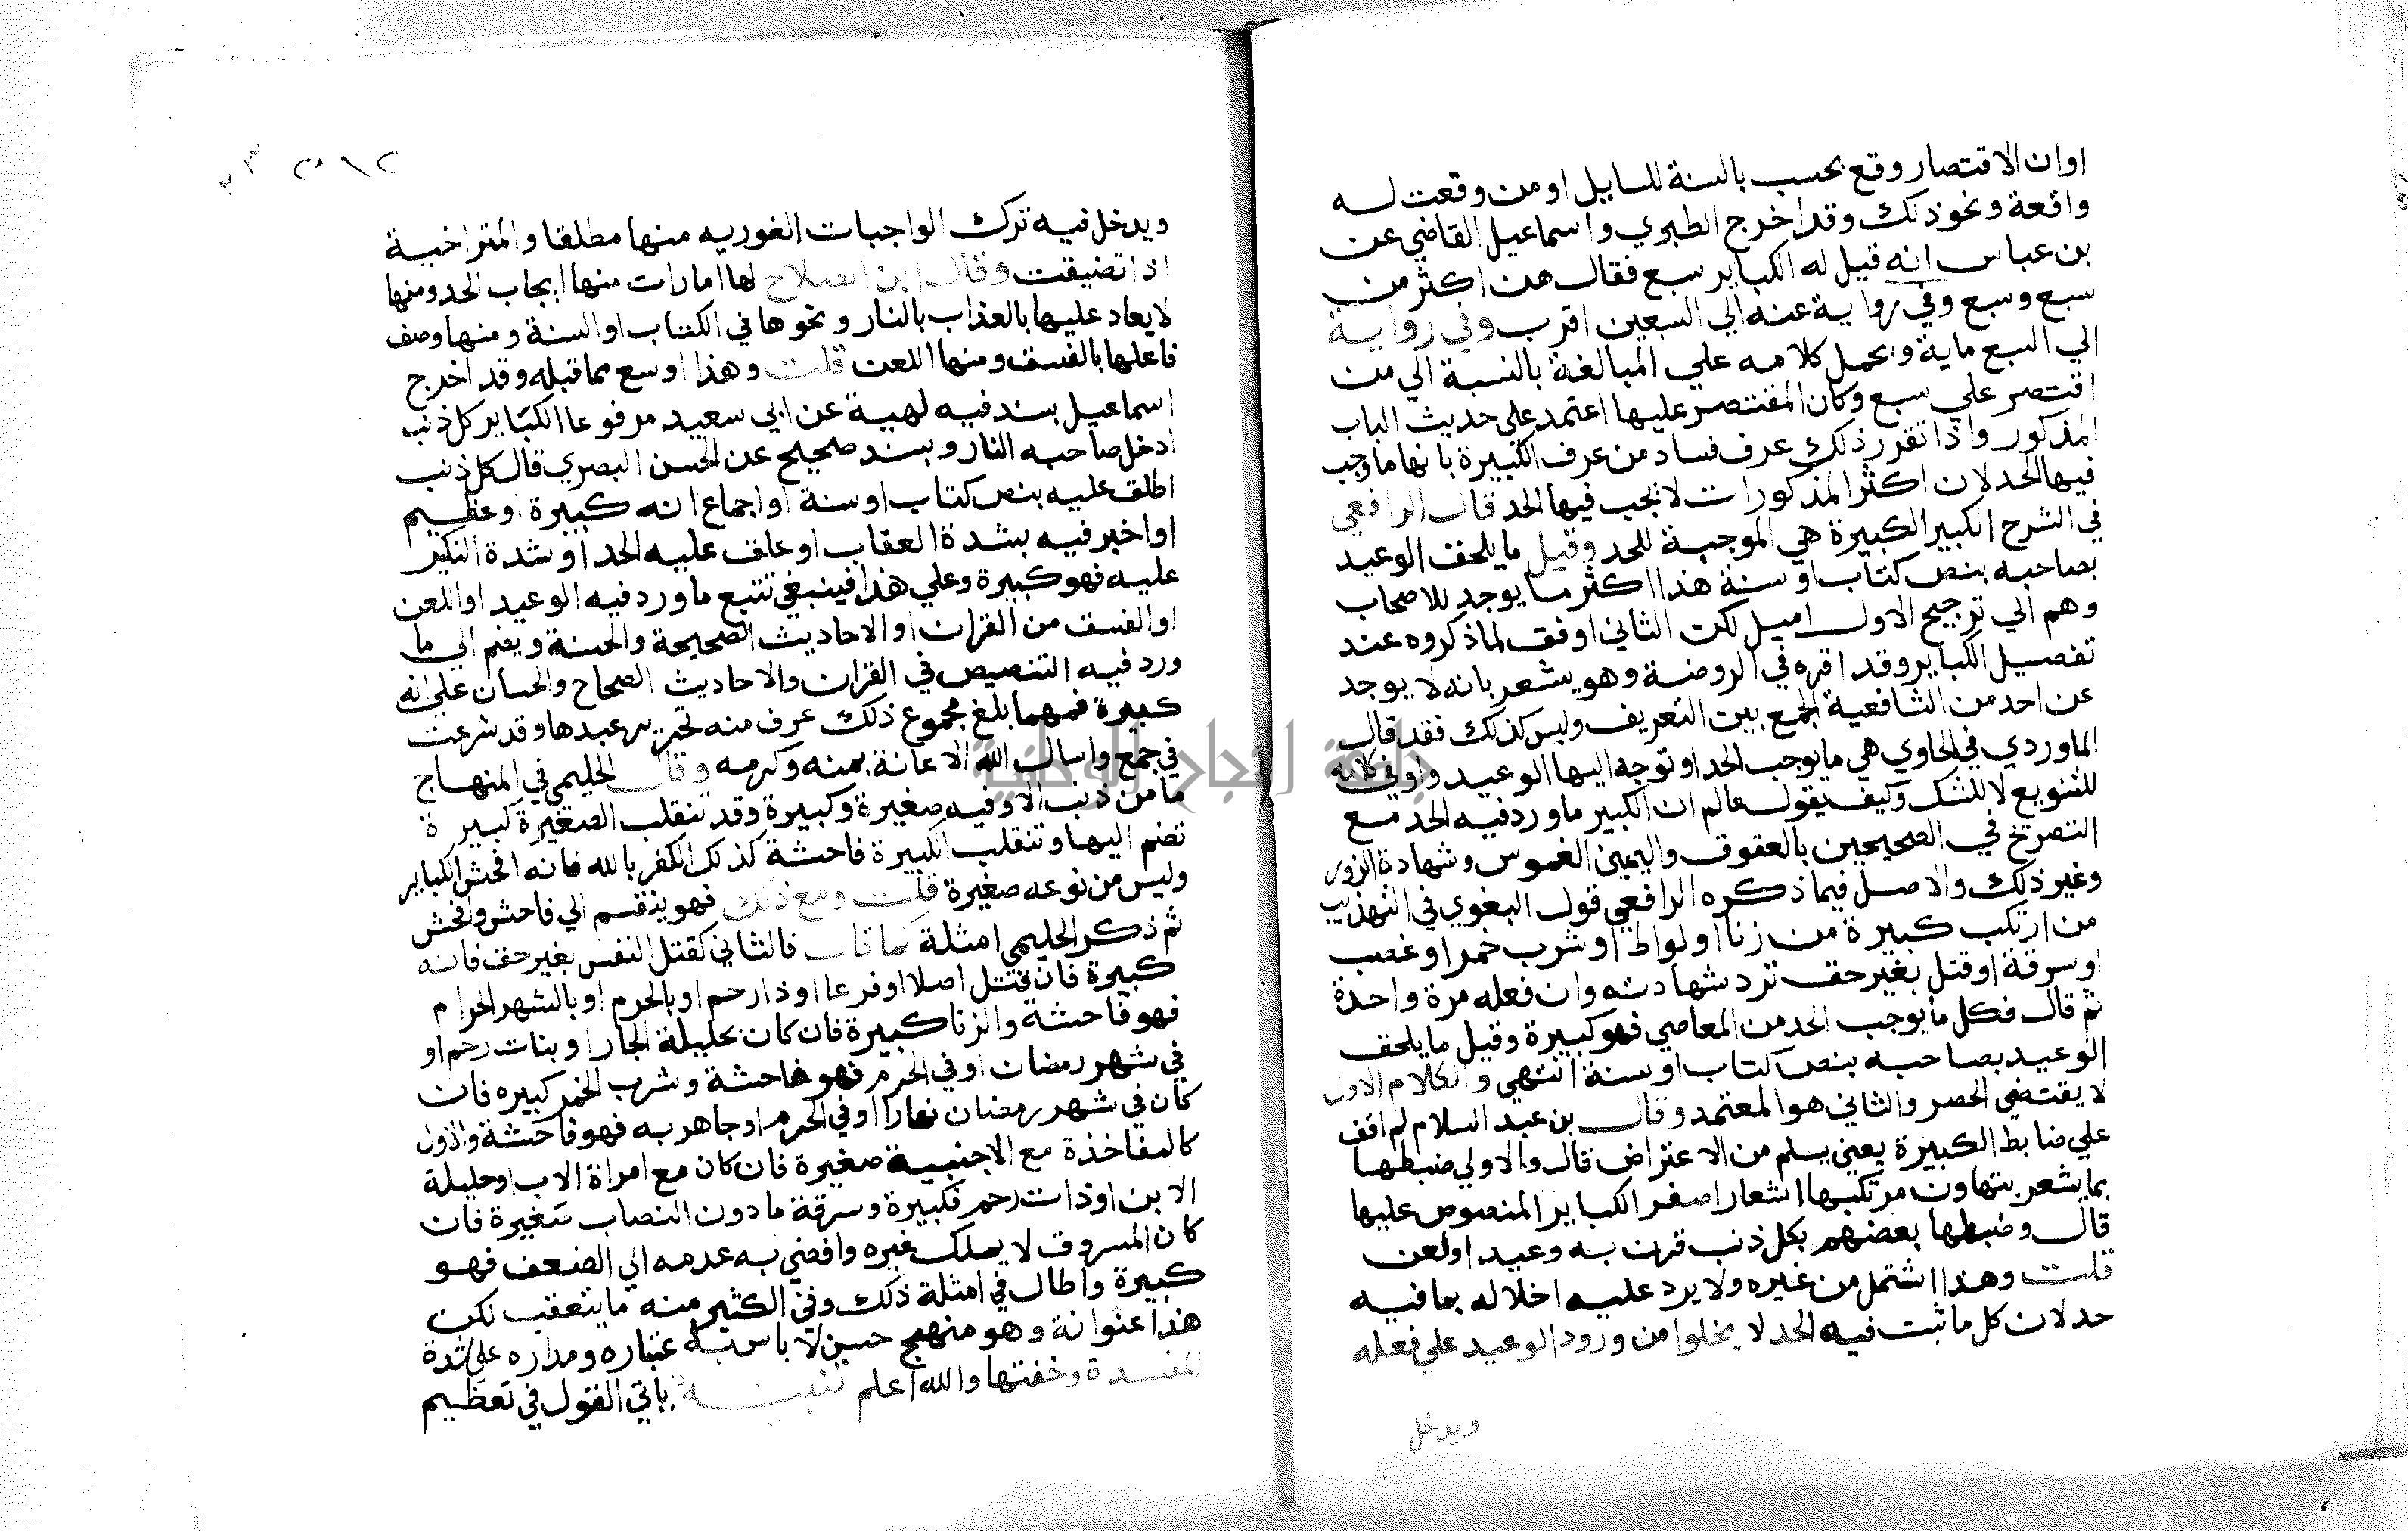 اوان الاقتصار وقع بحسب بالسنة للسايل او من وقعت له
واقعة ونحو ذلك وقد اخرج الطبري واسماعيل القاضي عن
بن عباس انه قيل له الكباير سبع فقال هن اكثر من
سبع وسبع وفي رواية عنه الي السبعين اقرب وفي رواية
الي السبع ماية ويحمل كلامه علي المبالغة بالنسبة الي من
اقتصر علي سبع وكان المقتصر عليها اعتمد علي حديث الباب
المذكور واذا تقرر ذلك عرف فساد من عرف الكبيرة بانها ما وجب
فيها الحد لان اكثر المذكورات لا يجب فيها الحد قال الرافعي
في الشرح الكبير الكبيرة هي الموجبة للحد وقيل ما يلحق الوعيد
بصاحبه بنص كتاب او سنة هذا اكثر ما يوجد للاصحاب
وهم الي ترجيح الاول اميل لكن الثاني اوفق لما ذكروه عند
تفصيل الكباير وقد اقره في الروضة وهو يشعر بانه لا يوجد
عن احد من الشافعية الجمع بين التعريف وليس كذلك فقد قال
الماوردي في الحاوي هي ما يوجب الحد او توجه اليها الوعيد واو في كلامه
للتنويع لا للشك وكيف يقول عالم ان الكبير ما ورد فيه الحد مع
التصريح في الصحيحين بالعقوق واليمين الغموس وشهادة الزور
وغير ذلك والاصل فيما ذكره الرافعي قول البغوي في التهذيب
من ارتكب كبيرة من زنا او لواط او شرب خمر او غصب
او سرقة او قتل بغير حق ترد شهادته وان فعله مرة واحدة
ثم قال فكل ما يوجب الحد من المعاصي فهو كبيرة وقيل ما يلحق
الوعيد بصاحبه بنص كتاب او سنة انتهي والكلام الاول
لا يقتضي الحصر والثاني هو المعتمد وقال بن عبد السلام لم اقف
علي ضابط الكبيرة يعني يسلم من الاعتراض قال والاولي ضبطها
بما يشعر بتهاون مرتكبها اشعار اصغر الكباير المنصوص عليها
قال وضبطها بعضهم بكل ذنب قرن به وعيد او لعن
قلت وهذا اشتمل من غيره ولا يرد عليه اخلاله بما فيه
حد لان كل ما ثبت فيه الحد لا يخلوا من ورود الوعيد علي فعله
ويدخل
ويدخل فيه ترك الواجبات الفوريه منها مطلقا والمتراخية
اذا تضيقت وقال ابن الصلاح لها امارات منها ايجاب الحد ومنها
لايعاد عليها بالعذاب بالنار ونحوها في الكتاب او السنة ومنها وصف
فاعلها بالفسق ومنها اللعن قلت وهذا اوسع مما قبله وقد اخرج
اسماعيل بسند فيه لهية عن ابي سعيد مرفوعا الكباير كل ذنب
ادخل صاحبه النار وبسند صحيح عن الحسن البصري قال كل ذنب
اطلق عليه بنص كتاب او سنة او اجماع انه كبيرة او عظيم
او اخبر فيه بشدة العقاب او علق عليه الحد او شدة النكير
عليه فهو كبيرة وعلي هذا فينبغي تتبع ما ورد فيه الوعيد او اللعن
او الفسق من القران او الاحاديث الصحيحة والحسنة ويضم الي ما
ورد فيه التنصيص في القران والاحاديث الصحاح والحسان علي انه
كبيرة فمهما بلغ مجموع ذلك عرف منه تحرير عبدها وقد شرعت
في جمع واسال الله الاعانة بمنه وكرمه وقال الحليمي في المنهاج
ما من ذنب الا وفيه صغيرة وكبيرة وقد تنقلب الصغيرة كبيرة
تضم اليها وتنقلب الكبيرة فاحشة كذلك الكفر بالله فانه افحش الكباير
وليس من نوعه صغيرة قلت ومع ذلك فهو ينقسم الي فاحش وافحش
ثم ذكر الحليمي امثلة لما قال فالثاني كقتل النفس بغير حق فانه
كبيرة فان قتل اصلا او فرعا او ذا رحم او بالحرم او بالشهر الحرام
فهو فاحشة والزنا كبيرة فان كان بحليلة الجار او بنات رحم او
في شهر رمضان او في الحرم فهو فاحشة وشرب الخمر كبيره فان
كان في شهر رمضان نهارا او في الحرم او جاهر به فهو فاحشة والاول
كالمفاخذة مع الاجنبية صغيرة فان كان مع امراة الاب او حليلة
الابن او ذات رحم فكبيرة وسرقة ما دون النصاب صغيرة فان
كان المسروق لا يملك غيره وافضي به عدمه الي الضعف فهو
كبيرة واطال في امثلة ذلك وفي الكثير منه ما يتعقب لكن
هذا عنوانة وهو منهج حسن لا باس باعتباره ومداره علي شدة
المفسدة وخفتها والله اعلم تنبيه ياتي القول في تعظيم
جامعة النجاح الوطنية